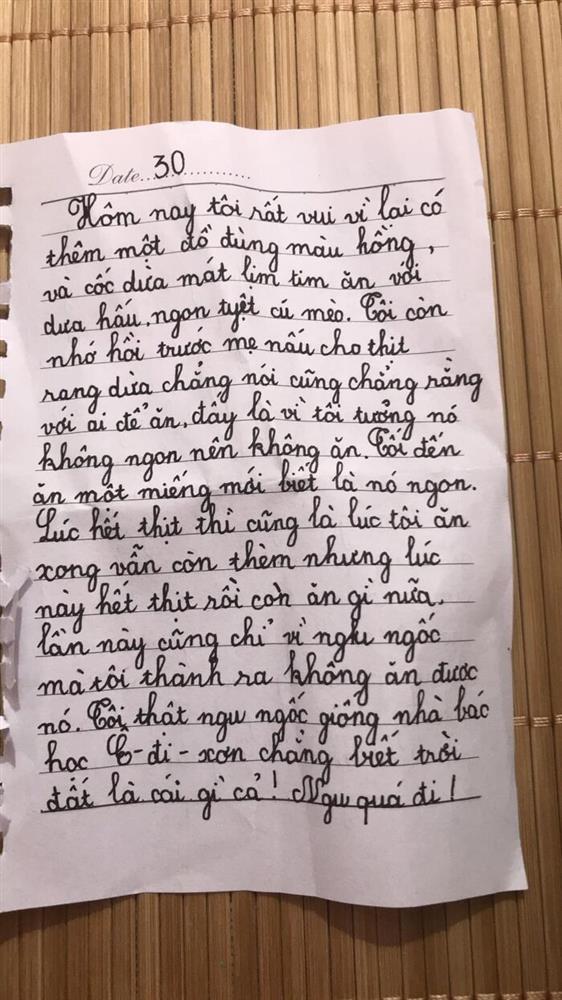 Date...30...............
Hôm nay tôi rất vui vì lại có
thêm một đồ dùng màu hồng,
và cốc dừa mát lịm tim ăn với
dưa hấu, ngon tuyệt cú mèo. Tôi còn
nhớ hồi trước mẹ nấu cho thịt
rang dừa chẳng nói cũng chẳng rằng
với ai để ăn, đấy là vì tôi tưởng nó
không ngon nên không ăn. Tối đến
ăn một miếng mới biết là nó ngon.
Lúc hết thịt thì cũng là lúc tôi ăn
xong vẫn còn thèm nhưng lúc
này hết thịt rồi còn ăn gì nữa.
lần này cũng chỉ vì ngu ngốc
mà tôi thành ra không ăn được
nó. Tôi thật ngu ngốc giống nhà bác
học Ê-đi-xơn chẳng biết trời
đất là cái gì cả! Ngu quá đi!